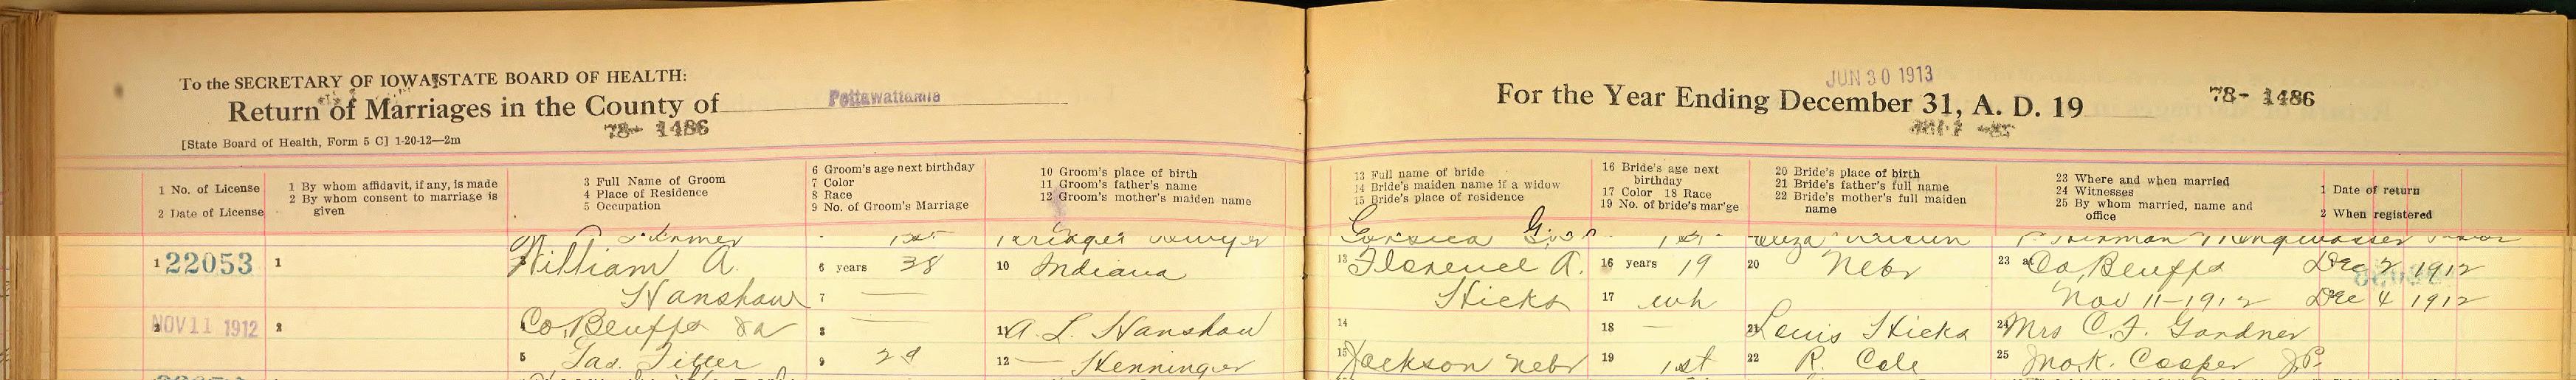 To the SECRETARY OF IOWA STATE BOARD OF HEALTH:
Return of Marriages in the County of Pottawattamie
78- 1486
[State Board of Health, Form 5 C] 1-20-12—2m
JUN 30 1913
For the Year Ending December 31, A. D. 19
78- 1486
1 No. of License
2 Date of License
1 By whom affidavit, if any, is made
2 By whom consent to marriage is given
3 Full Name of Groom
4 Place of Residence
5 Occupation
6 Groom's age next birthday
7 Color
8 Race
9 No. of Groom's Marriage
10 Groom's place of birth
11 Groom's father's name
12 Groom's mother's maiden name
13 Full name of bride
14 Bride's maiden name if a widow
15 Bride's place of residence
16 Bride's age next birthday
17 Color 18 Race
19 No. of bride's mar'ge
20 Bride's place of birth
21 Bride's father's full name
22 Bride's mother's full maiden name
23 Where and when married
24 Witnesses
25 By whom married, name and office
1 Date of return
2 When registered
1 22053 1 William A. 6 years 38 10 Indiana 13 Florence A. 16 years 19 20 Nebr 23 at Co Bluffs Dec 2 1912
Hanshaw 7 — Hicks 17 wh Nov 11-1912 Dec 4 1912
2 NOV 11 1912 2 Co. Bluffs Ia 8 — 11 A. L. Hanshaw 14 18 — 21 Louis Hicks 24 Mrs C. F. Gardner
5 Gas. Fitter 9 2d 12 — Henninger 15 Jackson Nebr 19 1st 22 R. Cole 25 Cooper J.P.